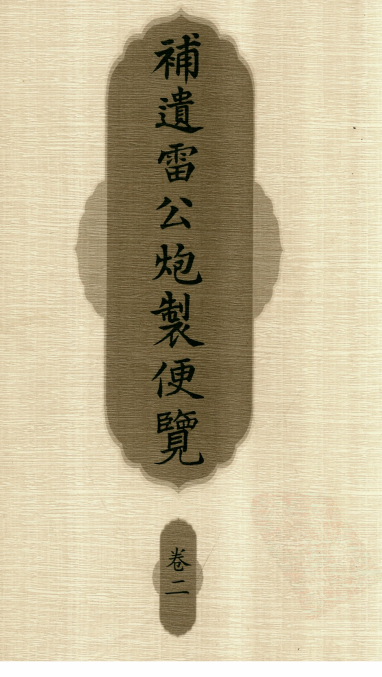 補遺雷公炮製便覽
卷二